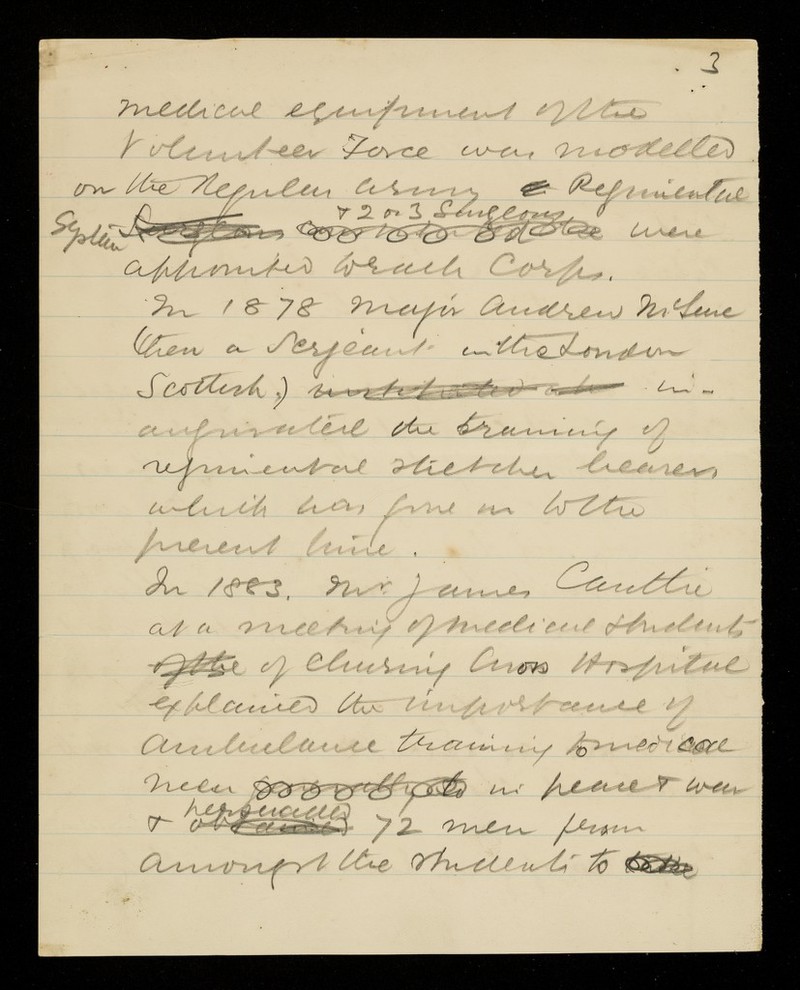 3
medical equipment of the
Volunteer Force was modelled
on the Regular Army Regimental
+ 2 or 3 Surgeons
Surgeons were
appointed to each Corps.
In 1878 Major Andrew
then a Serjeant in the London
Scottish) instituted in-
augurated the training of
regimental stretcher bearers
which has gone on to the
present time.
In 1883. Mr. James Cantlie
at a meeting of medical students
of the of Charing Cross Hospital
explained the importance of
Ambulance training to medical
men in peace + war
persuaded
+ obtained 72 men from
amongst the students to